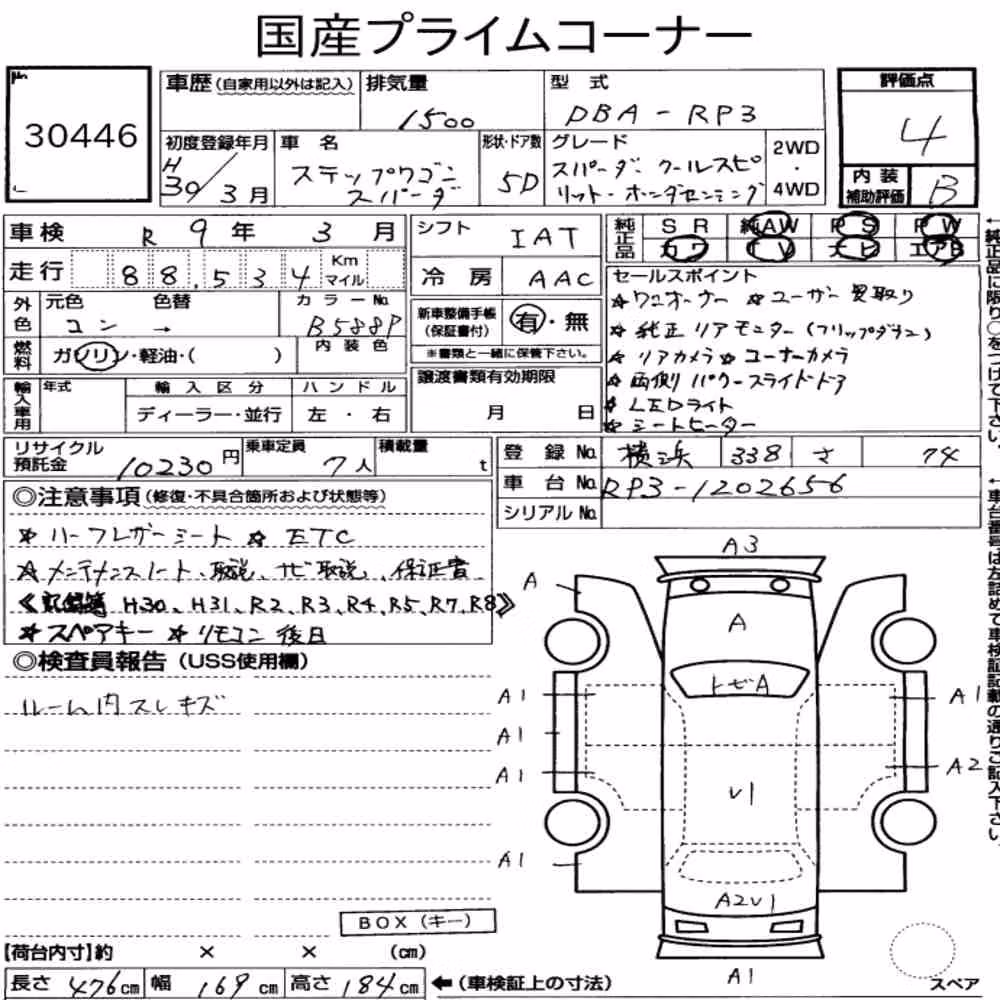 国産プライムコーナー
No. 30446
車歴(自家用以外は記入)
排気量 1500
型式 DBA-RP3
評価点 4
内装補助評価 B
初度登録年月 H30/3月
車名 ステップワゴン スパーダ
形状・ドア数 5D
グレード スパーダ. クールスピリット・ホンダセンシング
2WD・4WD
車検 R 9年 3月
走行 88,534 Km マイル
外色 元色 コン → 色替
カラーNo. B588P
燃料 ガソリン・軽油・( )
内装色
輸入車用 年式 輸入区分 ディーラー・並行 ハンドル 左・右
シフト IAT
冷房 AAC
新車整備手帳(保証書付) 有・無
※書類と一緒に保管下さい。
譲渡書類有効期限 月 日
純正品 SR 純AW PS PW
カワ TV ナビ エアB
セールスポイント
☆ワンオーナー ☆ユーザー買取り
☆純正リアモニター(フリップダウン)
☆リアカメラ☆コーナーカメラ
☆両側パワースライドドア
☆LEDライト
☆シートヒーター
←純正品に限り○をつけて下さい。
リサイクル預託金 10230円
乗車定員 7人
積載量 t
登録No. 横浜 338 さ 74
車台No. RP3-1202656
シリアルNo.
←車台番号は左詰めで車検証記載の通りご記入下さい。
◎注意事項(修復・不具合箇所および状態等)
☆ハーフレザーシート ☆ETC
☆メンテナンスノート、取説、ナビ取説、保証書
《記録簿 H30、H31、R2、R3、R4、R5、R7、R8》
☆スペアキー ☆リモコン 後日
◎検査員報告(USS使用欄)
ルーム内スレキズ
A3
A
A
トビA
A1
A1
A1
A1
A1
A2
V1
A2V1
A1
BOX(キー)
【荷台内寸】約 × × (cm)
長さ 476cm 幅 169cm 高さ 184cm ←(車検証上の寸法)
スペア